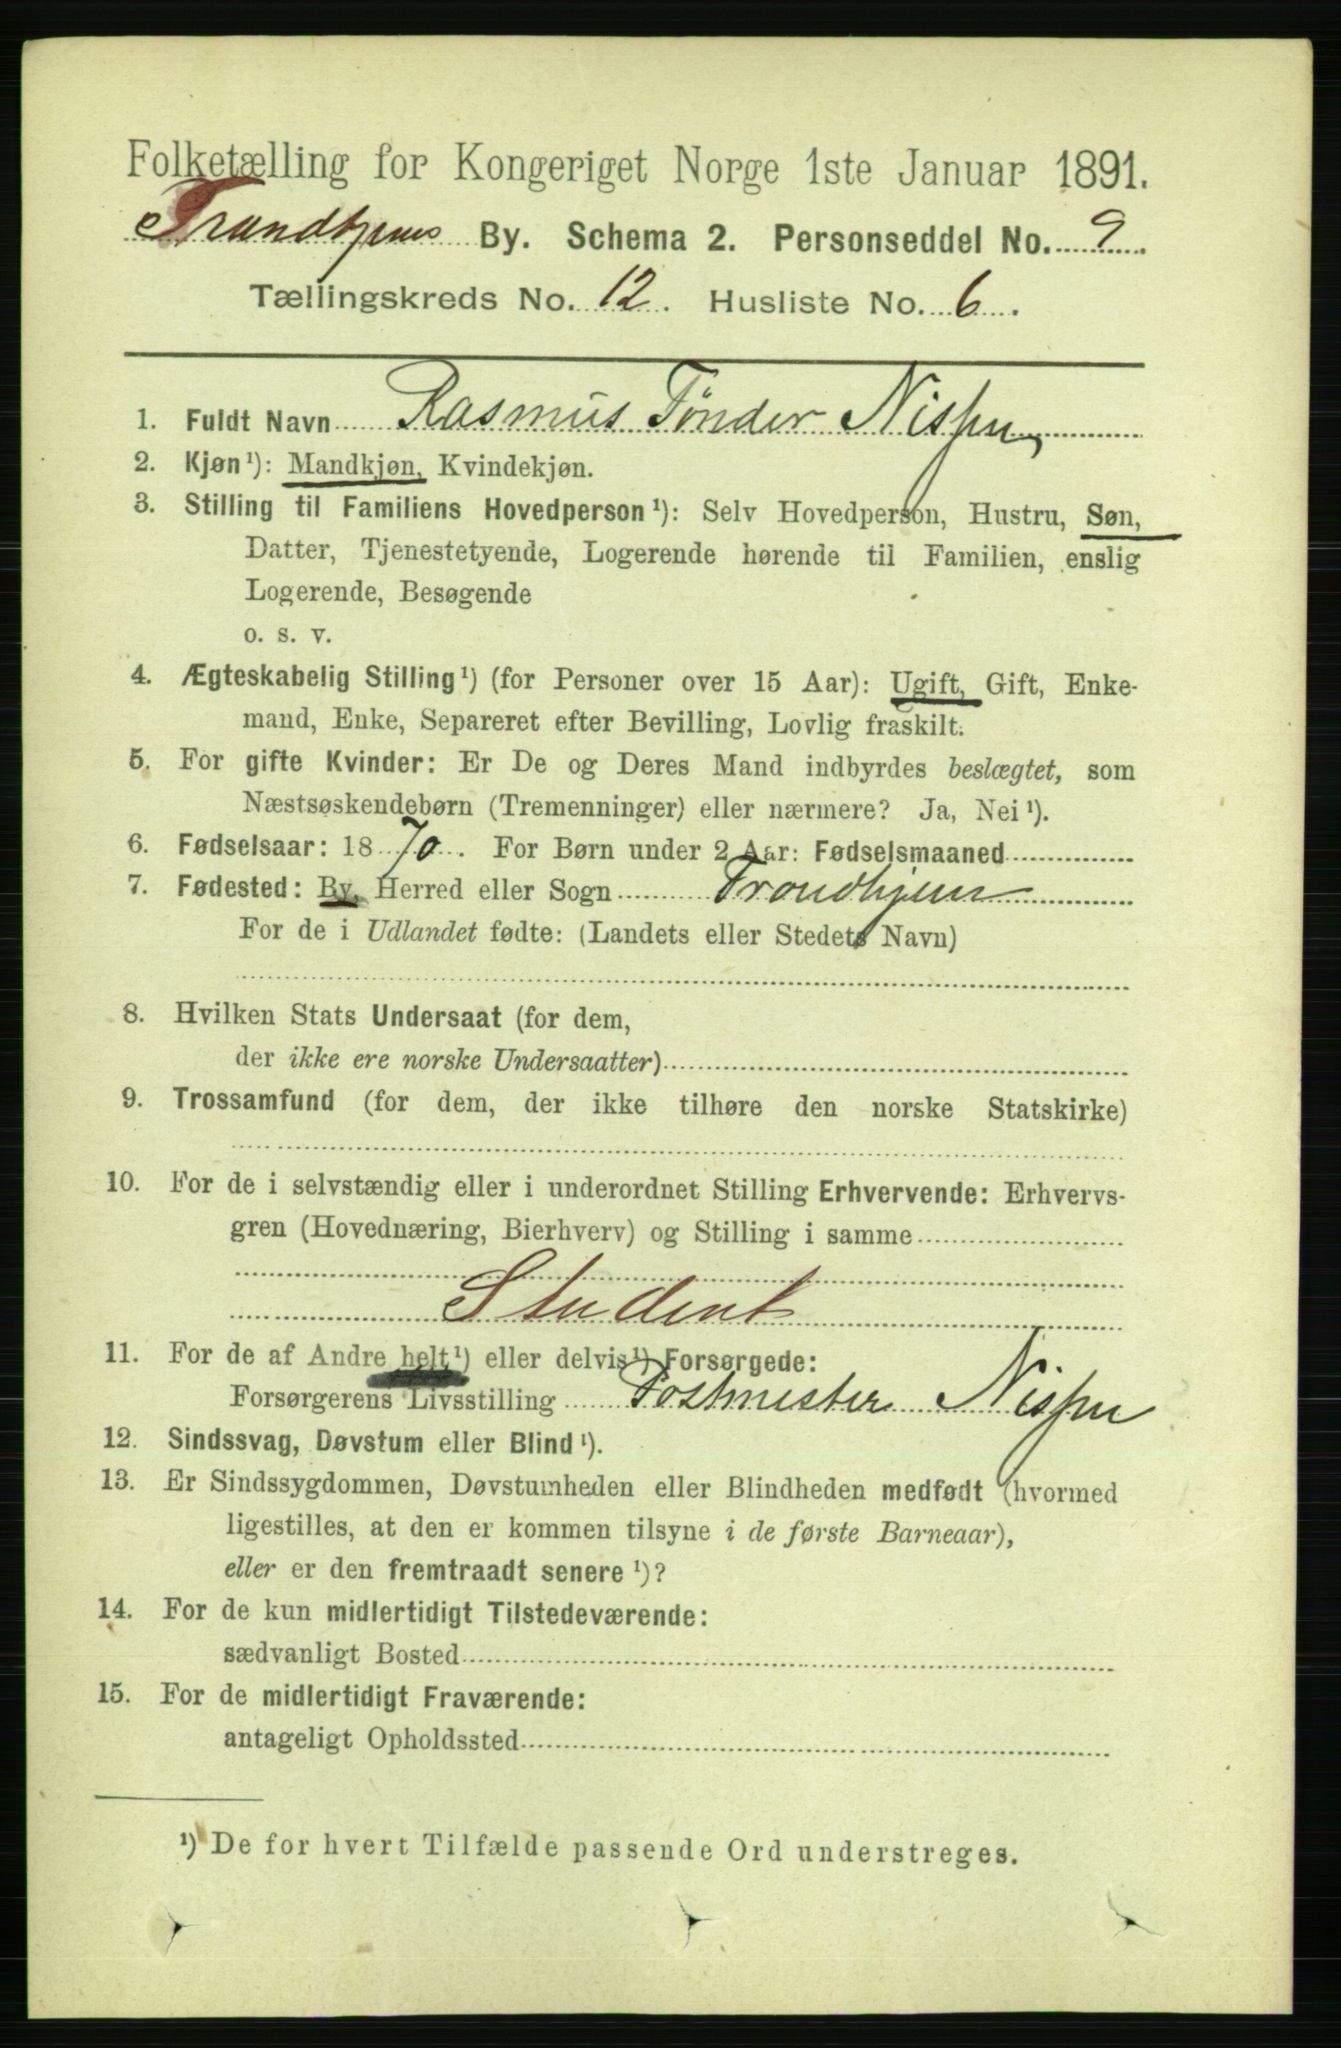 Folketælling for Kongeriget Norge 1ste Januar 1891.
Trondhjems By. Schema 2. Personseddel No. 9.
Tællingskreds No. 12. Husliste No. 6.
1. Fuldt Navn Rasmus Tønder Nissen,
2. Kjøn ¹): Mandkjøn, Kvindekjøn.
3. Stilling til Familiens Hovedperson ¹): Selv Hovedperson, Hustru, Søn,
Datter, Tjenestetyende, Logerende hørende til Familien, enslig
Logerende, Besøgende
o. s. v.
4. Ægteskabelig Stilling ¹) (for Personer over 15 Aar): Ugift, Gift, Enke-
mand, Enke, Separeret efter Bevilling, Lovlig fraskilt.
5. For gifte Kvinder: Er De og Deres Mand indbyrdes beslægtet, som
Næstsøskendebørn (Tremenninger) eller nærmere? Ja, Nei ¹).
6. Fødselsaar: 1870. For Børn under 2 Aar: Fødselsmaaned
7. Fødested: By, Herred eller Sogn Trondhjem
For de i Udlandet fødte: (Landets eller Stedets Navn)
8. Hvilken Stats Undersaat (for dem,
der ikke ere norske Undersaatter)
9. Trossamfund (for dem, der ikke tilhøre den norske Statskirke)
10. For de i selvstændig eller i underordnet Stilling Erhvervende: Erhvervs-
gren (Hovednæring, Bierhverv) og Stilling i samme
Student
11. For de af Andre helt ¹) eller delvis ¹) Forsørgede:
Forsørgerens Livsstilling Postmester Nissen
12. Sindssvag, Døvstum eller Blind ¹).
13. Er Sindssygdommen, Døvstumheden eller Blindheden medfødt (hvormed
ligestilles, at den er kommen tilsyne i de første Barneaar),
eller er den fremtraadt senere ¹)?
14. For de kun midlertidigt Tilstedeværende:
sædvanligt Bosted
15. For de midlertidigt Fraværende:
antageligt Opholdssted
¹) De for hvert Tilfælde passende Ord understreges.